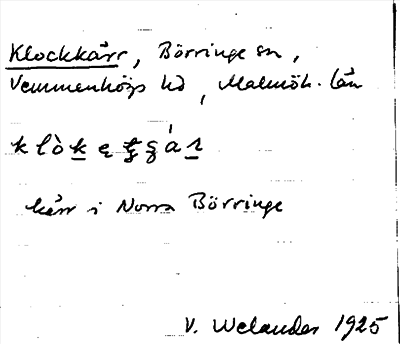 Klockkärr, Börringe sn,
Vemmenhögs hd, Malmöh. län
kärr i Norra Börringe
V. Welander 1925